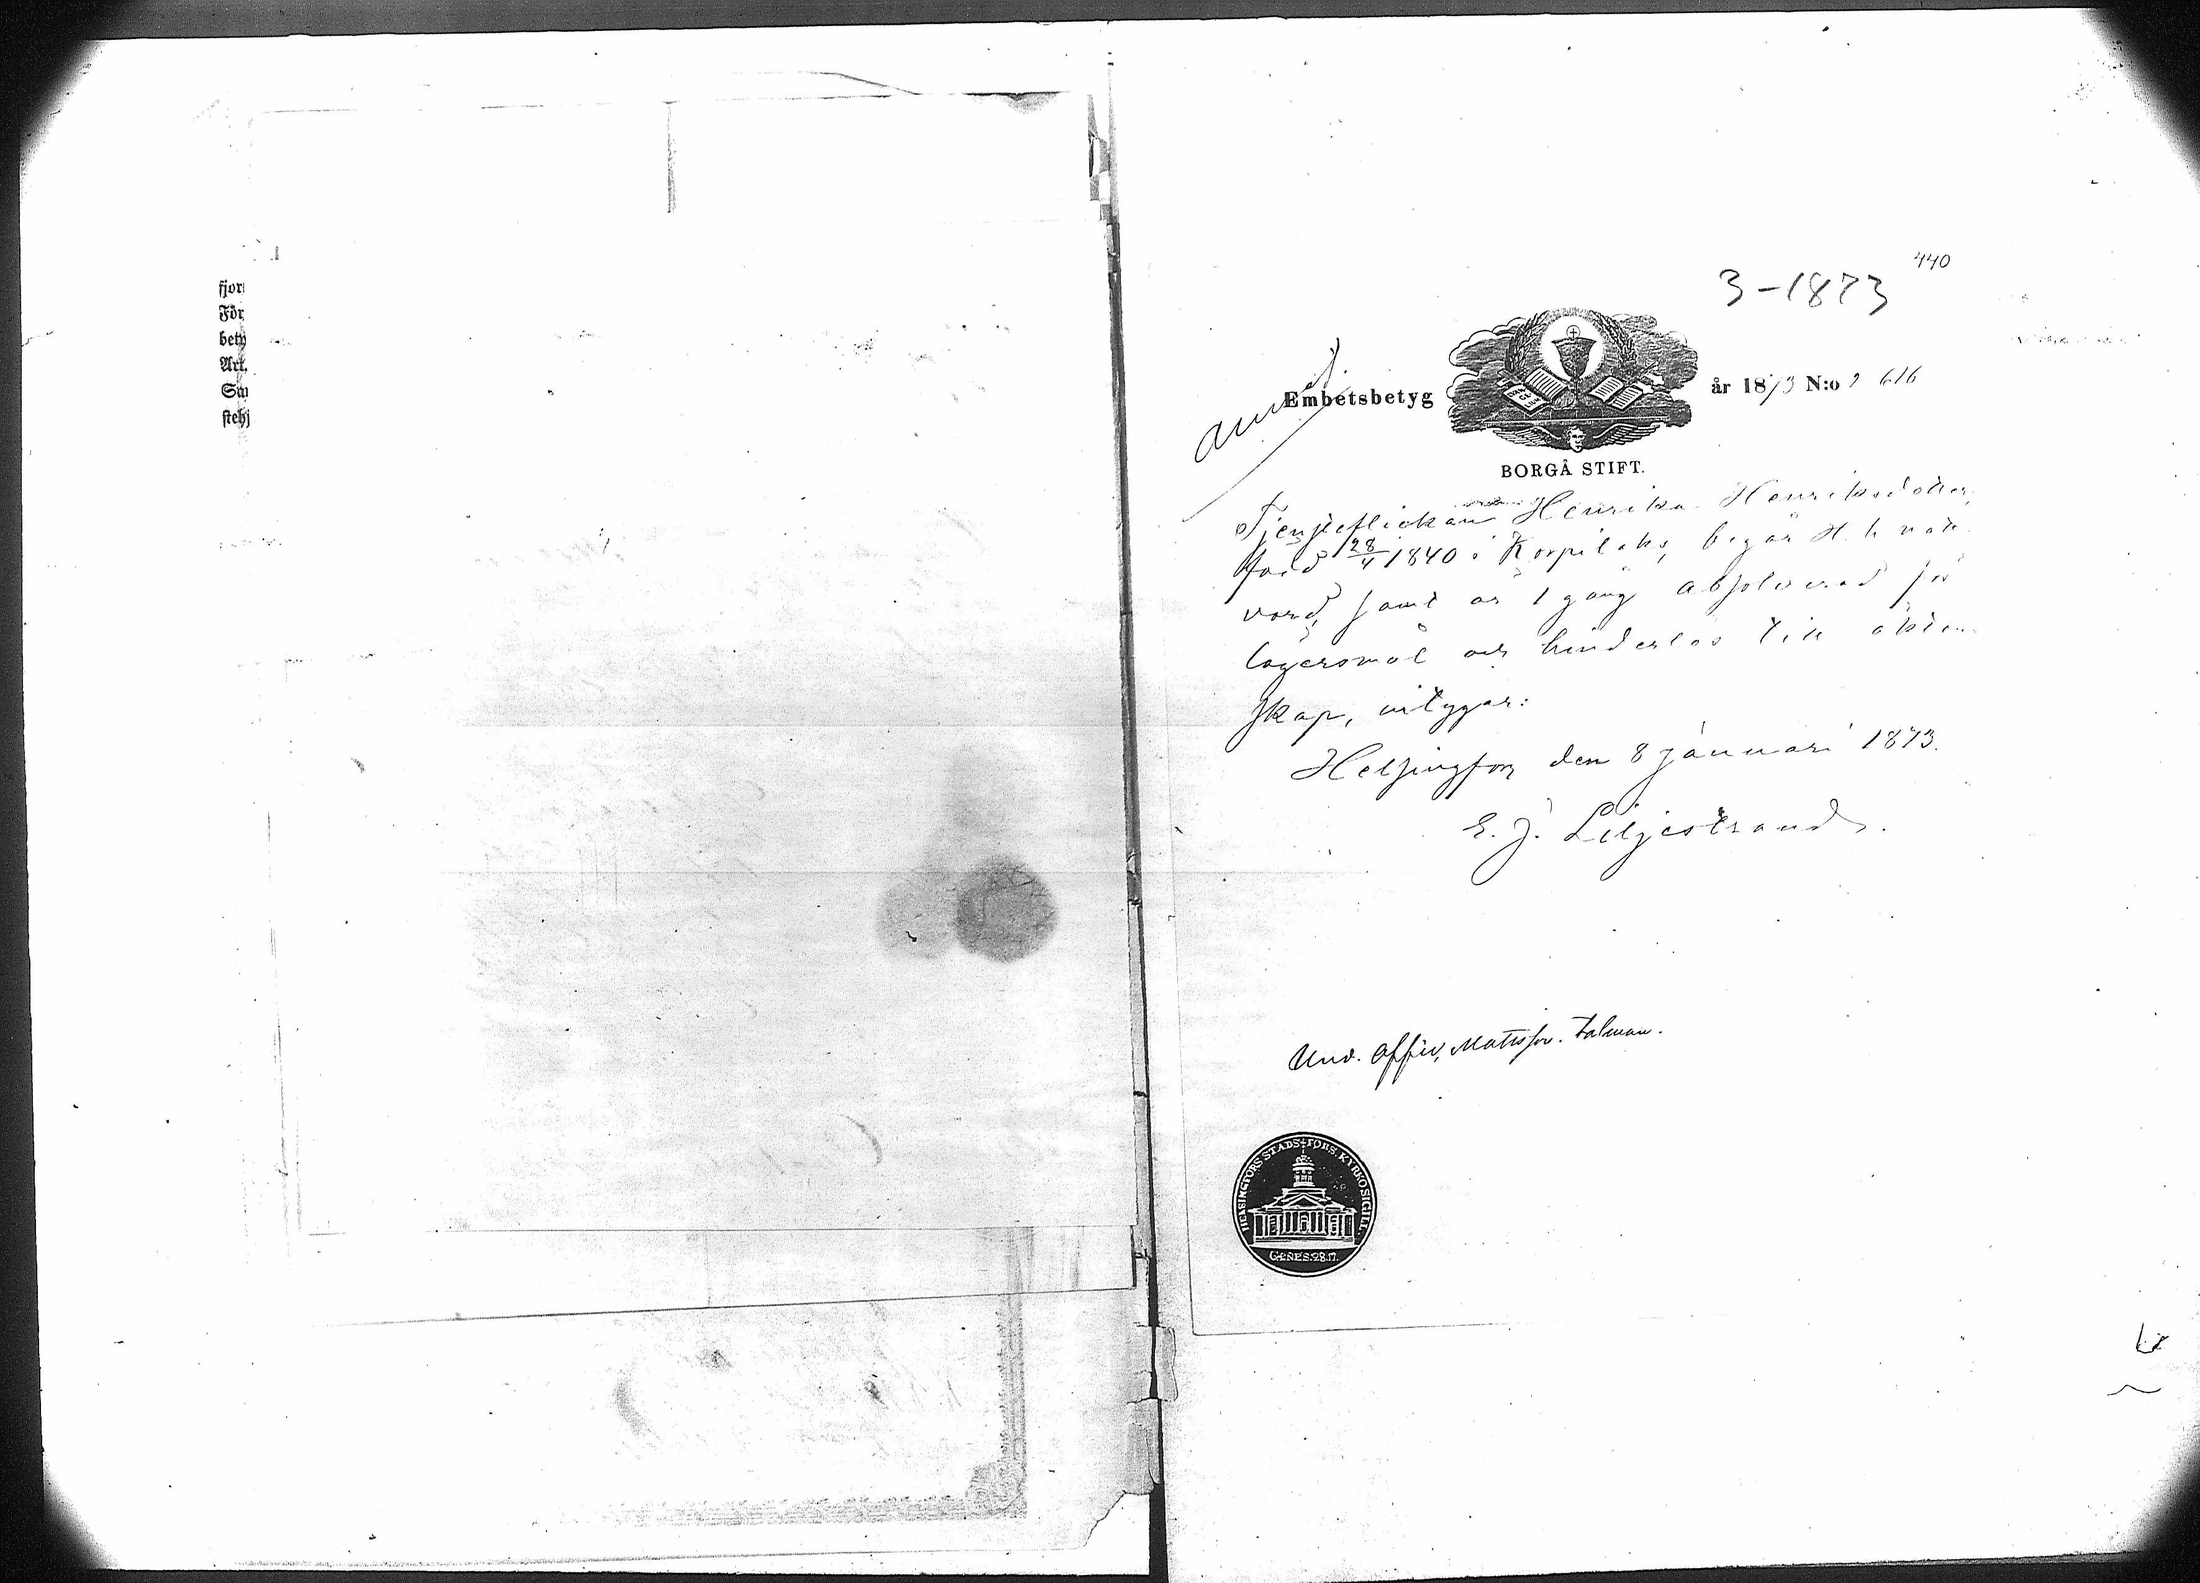 fjor
För
bety
Art.
Sa
stehj
440
3-1873
Embetsbetyg
år 1873 N:o 616
BORGÅ STIFT.
Tjensteflickan Henrika Henriksdotter,
född 28/4 1840 i Korpilaks, begår H. h. natt
vard, samt är 1 gång absolverad för
lägersmål och hinderlös till äkten
skap, intygar:
Helsingfors den 8 januari 1873.
E. J. Liljestrand.
Und. Offic. Mattsson. Talman.
HELSINGFORS STADS FÖRS. KYRKO SIGILL.
GENES. 28. 17.